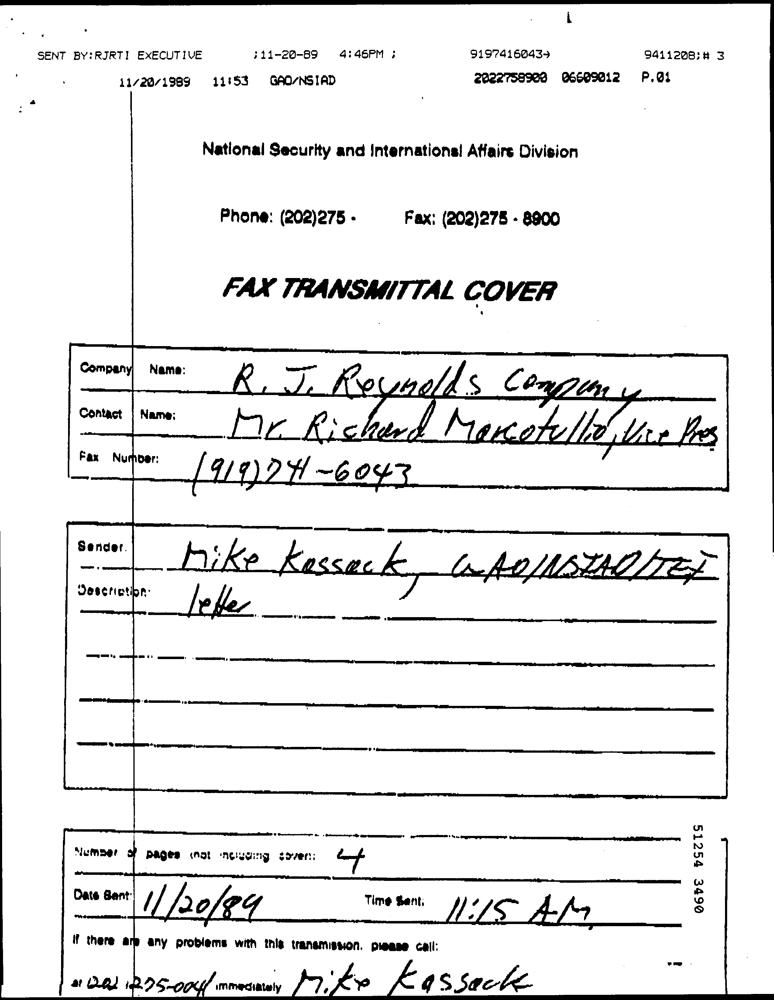 SENT BY:RJRTI EXECUTIVE ;11-20-89 4:46PM ; 9197416043→ 9411208;# 3
11/20/1989 11:53 GAO/NSIAD 2022758900 06609012 P.01
National Security and International Affairs Division
Phone: (202)275 - Fax: (202)275 - 8900
FAX TRANSMITTAL COVER
Company Name: R. J. Reynolds Company
Contact Name: Mr. Richard Marcotullio, Vice Pres
Fax Number: (919)741-6043
Sender: Mike Kassack, GAO/NSIAD/TEF
Description: letter
Number of pages (not including cover): 4
Date Sent: 11/20/89 Time Sent: 11:15 AM
If there are any problems with this transmission, please call:
at (202) 275-0041 immediately Mike Kassack
51254 3490